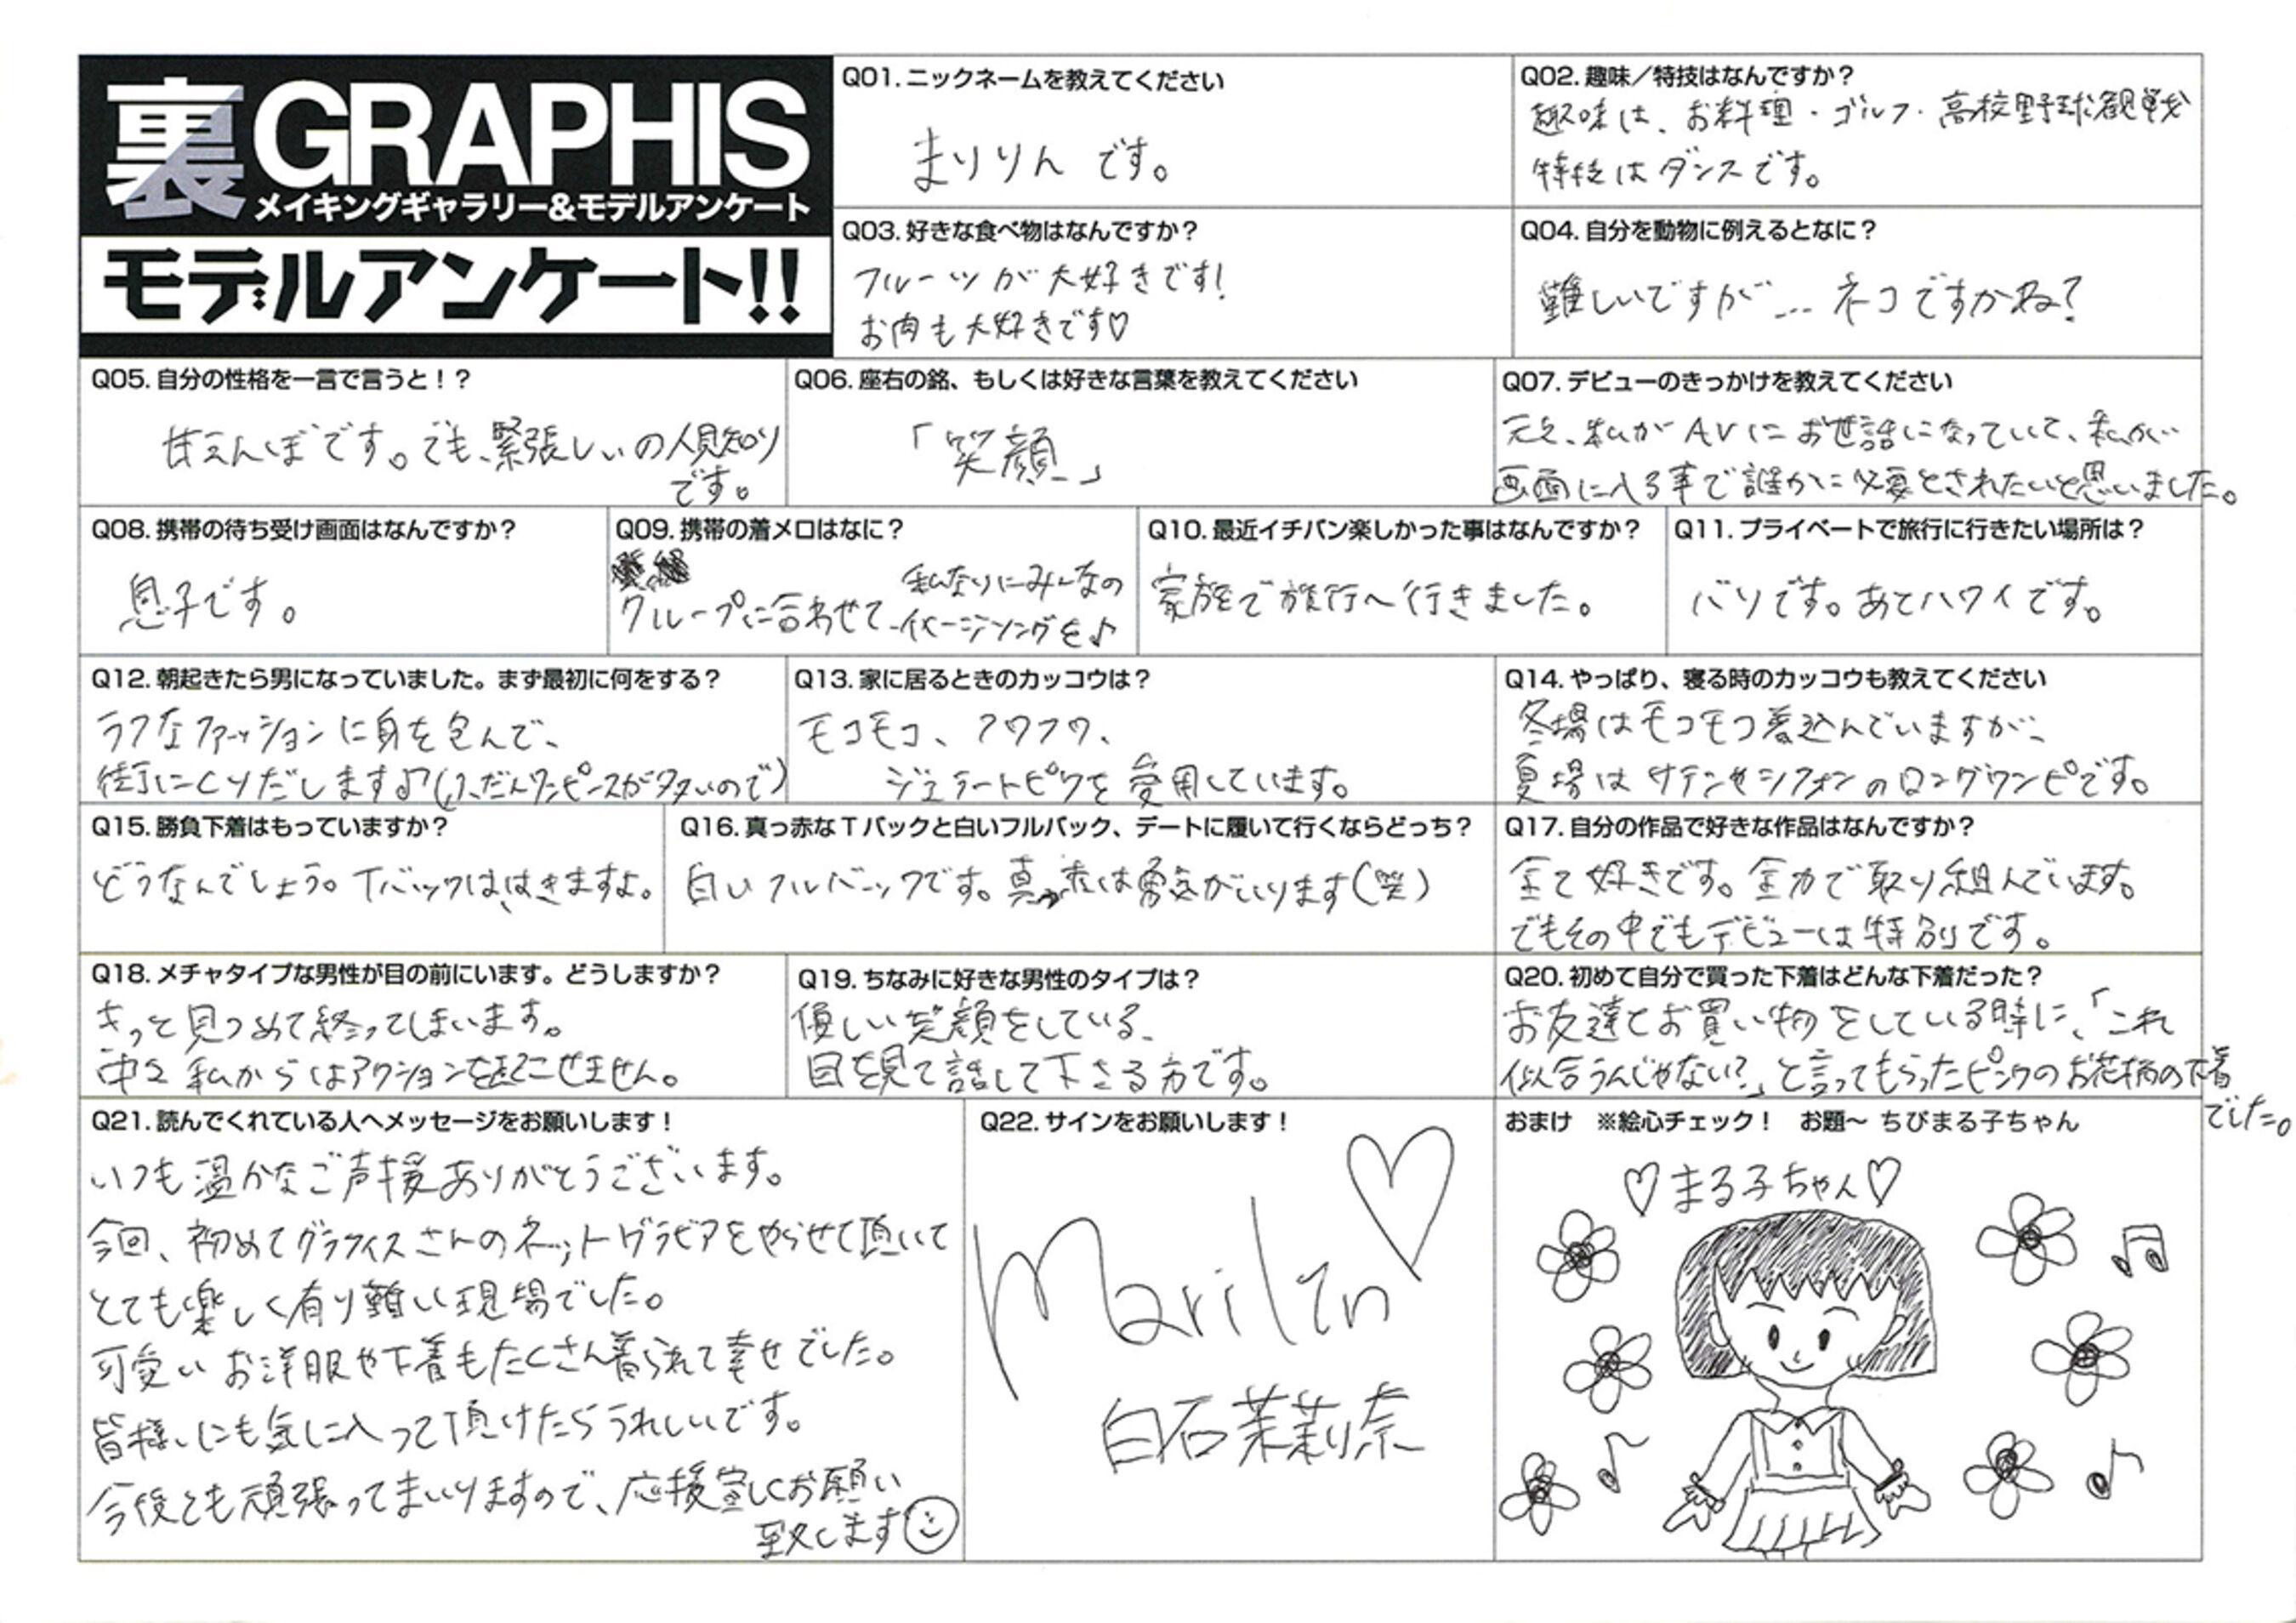 裏GRAPHIS
メイキングギャラリー&モデルアンケート
モデルアンケート!!
Q01. ニックネームを教えてください
まりりん です。
Q02. 趣味／特技はなんですか？
趣味は、お料理・ゴルフ・高校野球観戦
特技はダンスです。
Q03. 好きな食べ物はなんですか？
フルーツが大好きです!
お肉も大好きです♡
Q04. 自分を動物に例えるとなに？
難しいですが… ネコですかね?
Q05. 自分の性格を一言で言うと！？
甘えんぼです。でも、緊張しぃの人見知り
です。
Q06. 座右の銘、もしくは好きな言葉を教えてください
「笑顔」
Q07. デビューのきっかけを教えてください
元々、私がAVにお世話になっていて、私が
画面に入る事で誰かに必要とされたいと思いました。
Q08. 携帯の待ち受け画面はなんですか？
息子です。
Q09. 携帯の着メロはなに？
グループに合わせて、私なりにみんなの
イメージソングを♪
Q10. 最近イチバン楽しかった事はなんですか？
家族で旅行へ行きました。
Q11. プライベートで旅行に行きたい場所は？
バリです。あとハワイです。
Q12. 朝起きたら男になっていました。まず最初に何をする？
ラフなファッションに身を包んで、
街にくりだします♪(ふだんワンピースが多いので)
Q13. 家に居るときのカッコウは？
モコモコ、フワフワ、
ジェラートピケを愛用しています。
Q14. やっぱり、寝る時のカッコウも教えてください
冬場はモコモコ着込んでいますが、
夏場はサテンやシフォンのロングワンピです。
Q15. 勝負下着はもっていますか？
どうなんでしょう。Tバックは、はきますよ。
Q16. 真っ赤なTバックと白いフルバック、デートに履いて行くならどっち？
白いフルバックです。真っ赤は勇気がいります(笑)
Q17. 自分の作品で好きな作品はなんですか？
全て好きです。全力で取り組んでいます。
でもその中でもデビューは特別です。
Q18. メチャタイプな男性が目の前にいます。どうしますか？
きっと見つめて終ってしまいます。
中々私からはアクションを起こせません。
Q19. ちなみに好きな男性のタイプは？
優しい笑顔をしている、
目を見て話して下さる方です。
Q20. 初めて自分で買った下着はどんな下着だった？
お友達とお買い物をしている時に、「これ
似合うんじゃない?」と言ってもらったピンクのお花柄の下着
でした。
Q21. 読んでくれている人へメッセージをお願いします！
いつも温かなご声援ありがとうございます。
今回、初めてグラフィスさんのネットグラビアをやらせて頂いて
とても楽しく有り難い現場でした。
可愛いお洋服や下着もたくさん着られて幸せでした。
皆様にも気に入って頂けたらうれしいです。
今後とも頑張ってまいりますので、応援宜しくお願い
致します
Q22. サインをお願いします！
Marilin♡
白石茉莉奈
おまけ ※絵心チェック！ お題〜 ちびまる子ちゃん
♡まる子ちゃん♡